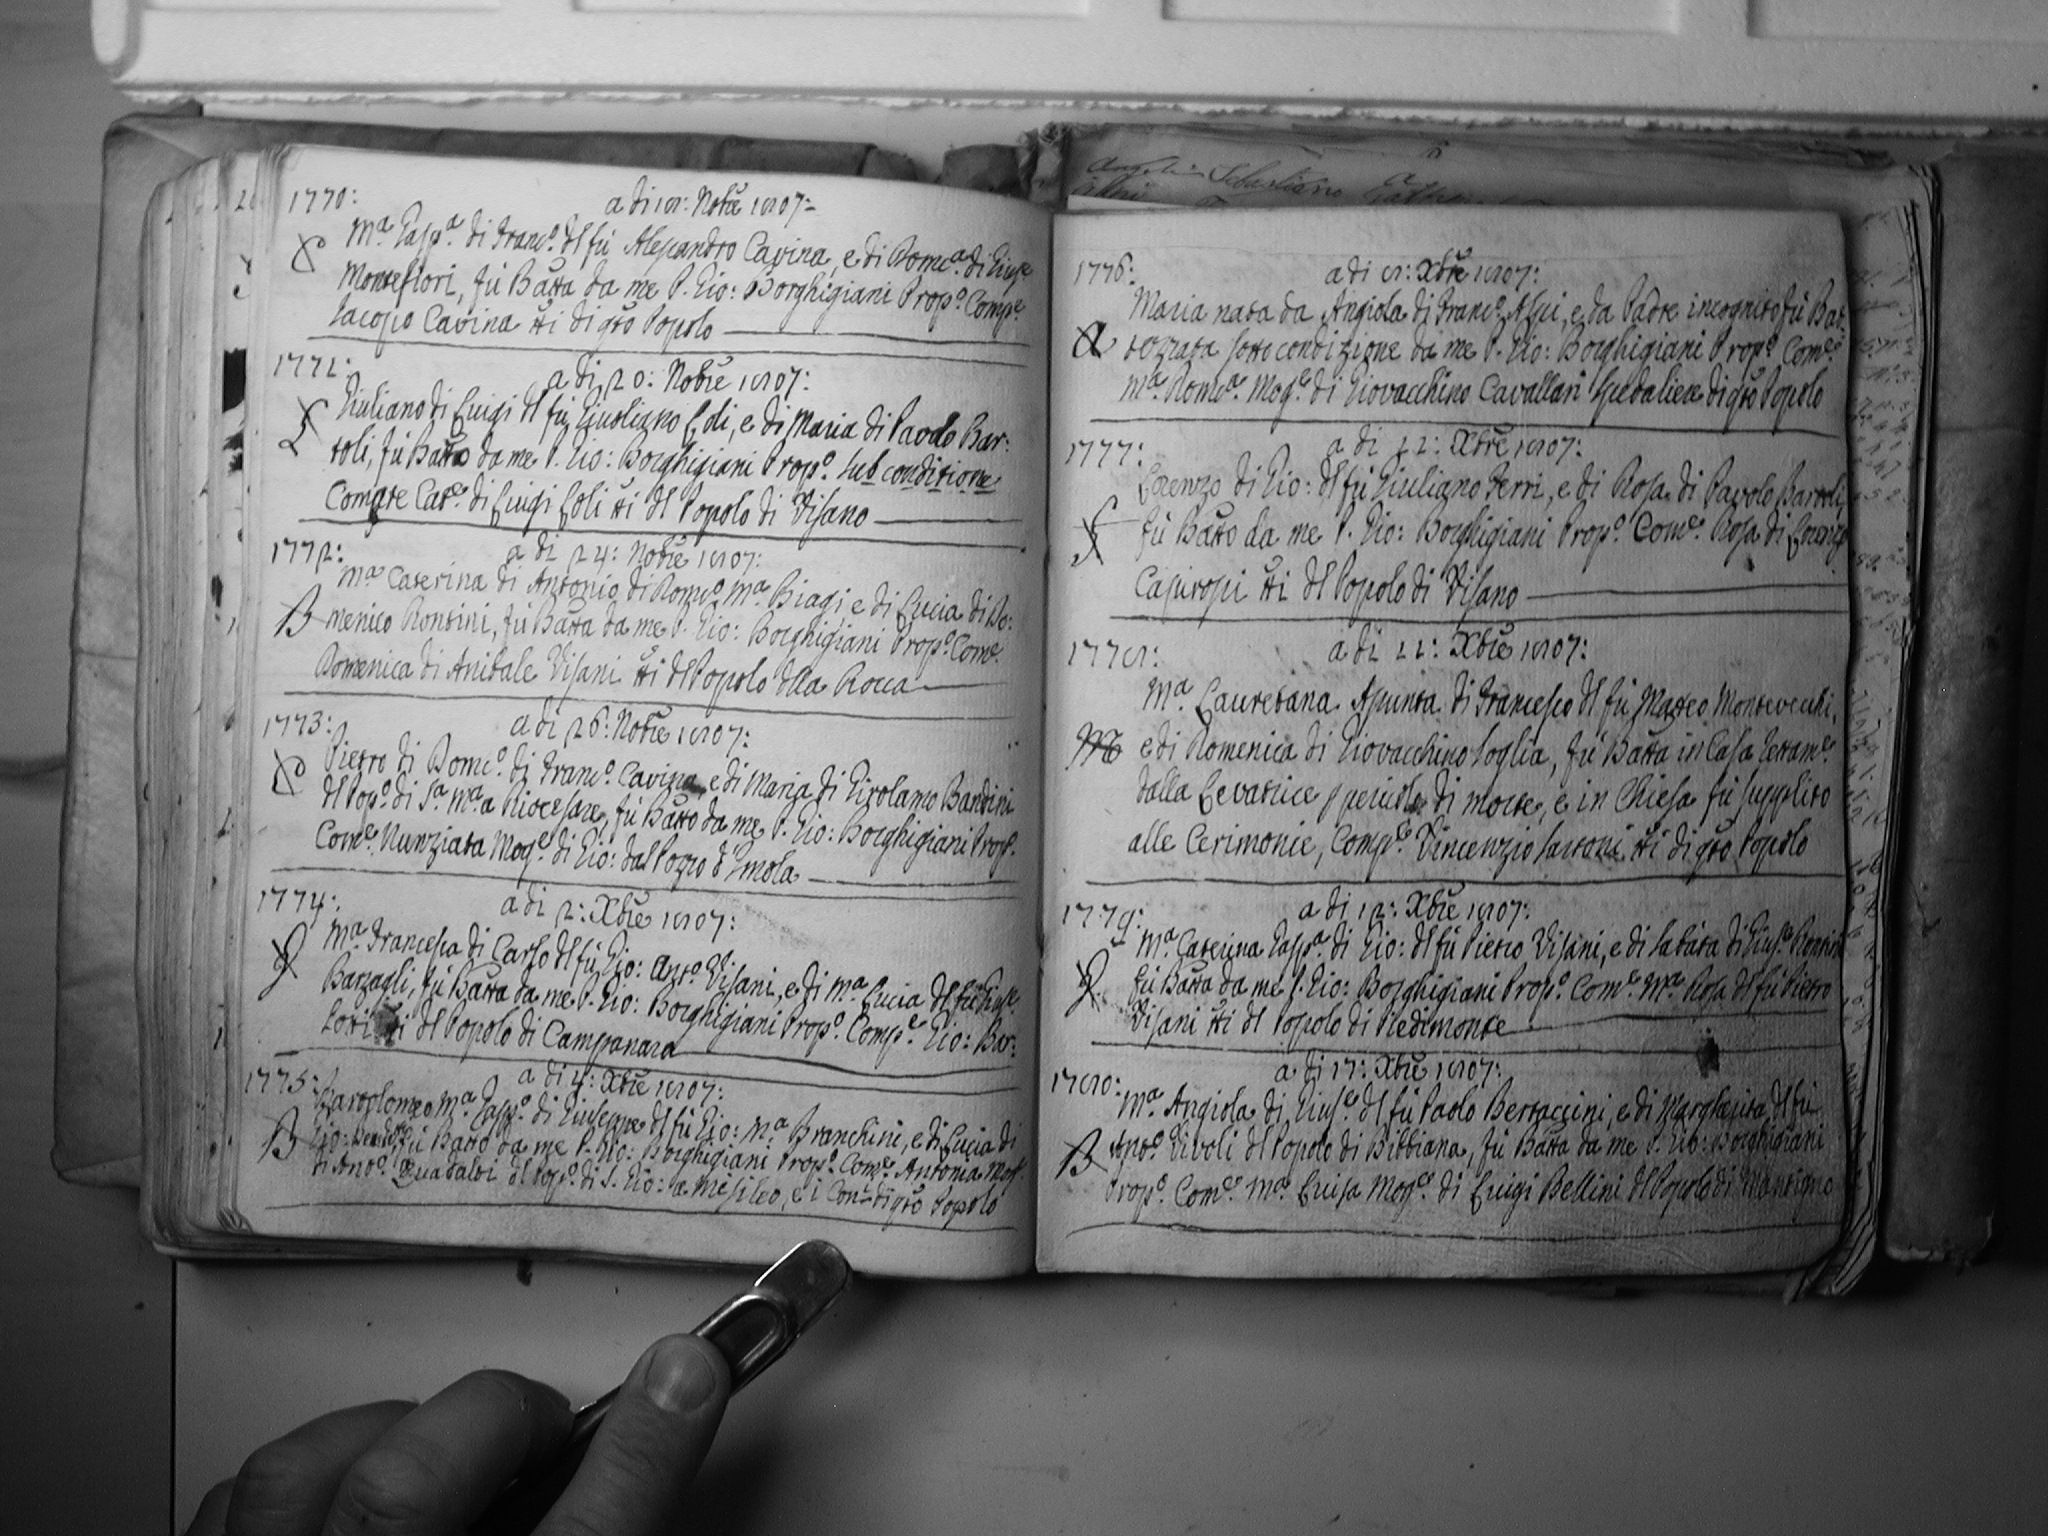 1770:
a di 18: Nobre 1807:
Ma Gaspa. di Franco. del fu Alesandro Cavina, e di Domca. di Giuse
Montefiori, fu Batta da me P. Gio: Borghigiani Propo. Compe.
Iacopo Cavina tti di qto Popolo
1771:
a di 20: Nobre 1807:
Giuliano di Luigi del fu Giugliano Loli, e di Maria di Pavolo Bar:
toli, fu Batto da me P. Gio: Borghigiani Propo. sub conditione
Comare Cate. di Luigi Loli tti del Popolo di Visano
1772:
a di 24: Nobre 1807:
Ma Caterina di Antonio di Domco Ma Biagi e di Lucia di Do:
B menico Rontini, fu Batta da me P. Gio: Borghigiani Propo. Come.
Domenica di Anibale Visani tti del Popolo della Rocca
1773:
a di 26: Nobre 1807:
Pietro di Domco. di Franco. Cavina, e di Maria di Girolamo Bandini
C del Popo. di Sa. Ma. a Riocesare, fu Batto da me P. Gio: Borghigiani Propo.
Come. Nunziata Moge. di Gio: dal Pozzo d'Imola
1774:
a di 2: Xbre 1807:
Ma Francesca di Carlo del fu Gio: Anto. Visani, e di Ma Lucia del fu Giuse
Barzagli, fu Batta da me P. Gio: Borghigiani Propo. Compe. Gio: Bar:
tti del Popolo di Campanara
1775:
a di 4: Xbre 1807:
Bartolomeo Ma Gaspo. di Giuseppe del fu Gio: Ma Branchini, e di Lucia di
B Gio: fu Batto da me P. Gio: Borghigiani Propo. Come. Antonia Moge
di Anto. del Popo. di S. Gio: a Misileo, e i di qto Popolo
1776:
a di 8: Xbre 1807:
Maria nata da Angiola di Franco. Alpi, e da Padre incognito fu Bat:
A tezzata sotto condizione da me P. Gio: Borghigiani Propo. Come.
Ma. Domca. Moge. di Giovacchino Cavallari Spedaliere di qto Popolo
1777:
a di 11: Xbre 1807:
Lorenzo di Gio: del fu Giuliano Ferri, e di Rosa di Pavolo Bartoli,
F fu Batto da me P. Gio: Borghigiani Propo. Come. Rosa di Lorenzo
tti del Popolo di Visano
1778:
a di 11: Xbre 1807:
Ma Lauretana Asunta di Francesco del fu Matteo Montevecchi,
M e di Domenica di Giovacchino Soglia, fu Batta in Casa
dalla Levatrice p pericolo di morte, e in Chiesa fu supplito
alle Cerimonie, Compe. Vincenzio Sartoni tti di qto Popolo
1779:
a di 12: Xbre 1807:
Ma Caterina Gaspa. di Gio: del fu Pietro Visani, e di Sabata di Giuse. Rontini
fu Batta da me P. Gio: Borghigiani Propo. Come. Ma Rosa del fu Pietro
Visani tti del Popolo di Piedimonte
1780:
a di 17: Xbre 1807:
Ma Angiola di Giuse. del fu Paolo Bertaccini, e di Margherita del fu
B Anto. Tivoli del Popolo di Bibbiana, fu Batta da me P. Gio: Borghigiani
Propo. Come. Ma. Luisa Moge. di Luigi Bellini del Popolo di Mantigno